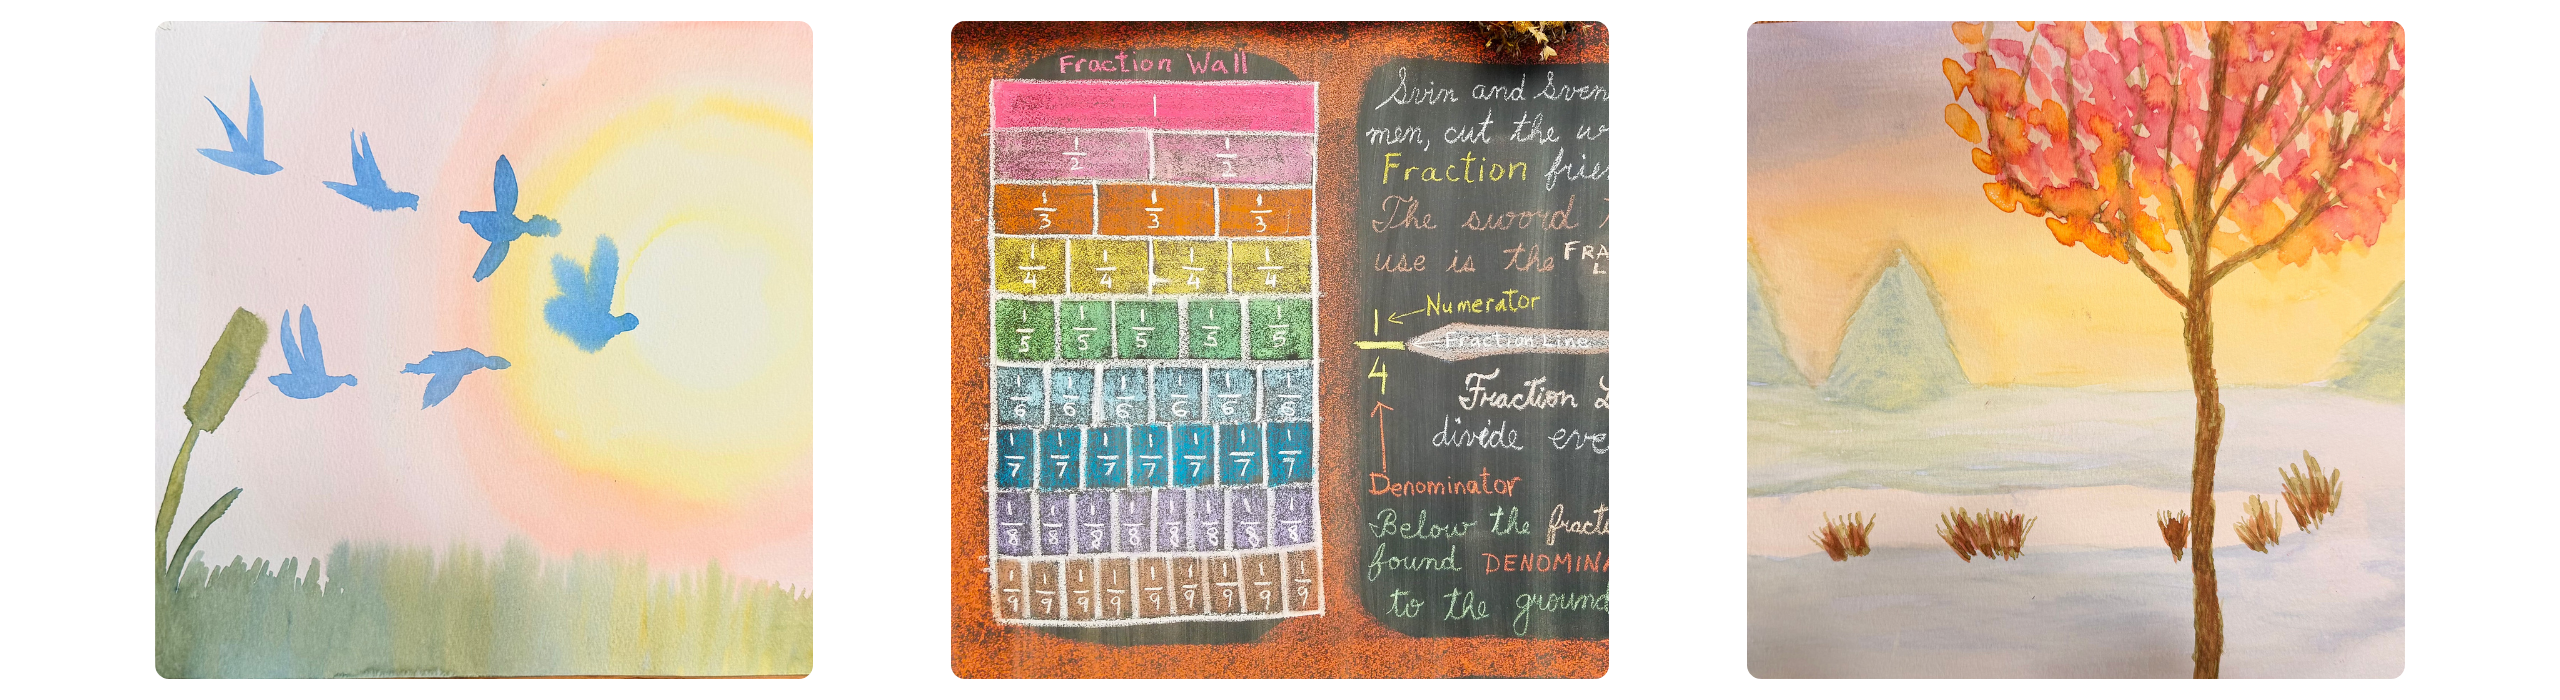 Fraction Wall
1
1/2 1/2
1/3 1/3 1/3
1/4 1/4 1/4 1/4
1/5 1/5 1/5 1/5 1/5
1/6 1/6 1/6 1/6 1/6 1/6
1/7 1/7 1/7 1/7 1/7 1/7 1/7
1/8 1/8 1/8 1/8 1/8 1/8 1/8 1/8
1/9 1/9 1/9 1/9 1/9 1/9 1/9 1/9 1/9
Svin and Sven
men, cut the
Fraction
The sword
use is the
1 Numerator
Fraction Line
4
Fraction
divide
Denominator
Below the
found
to the ground